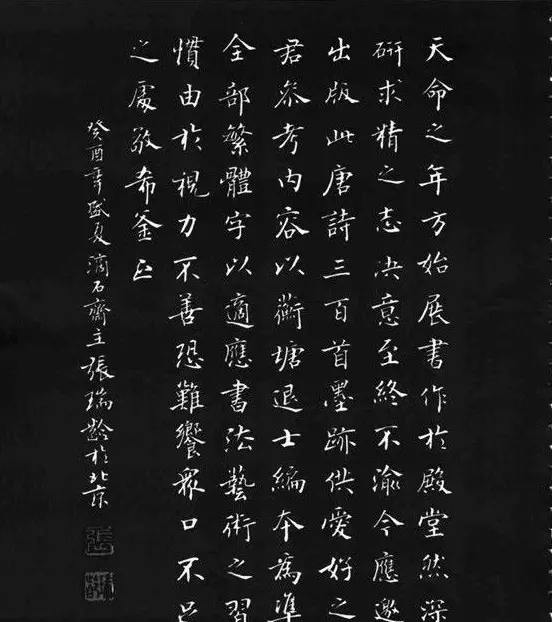 天命之年方始展書作於殿堂然深
研求精之志决意至終不渝今應邀
出版此唐詩三百首墨跡供愛好之
君參考内容以蘅塘退士編本爲準
全部繁體字以適應書法藝術之習
慣由於視力不善恐難饗衆口不足
之處敬希鉴正
癸酉年盛夏滴石齋主張瑞齡於北京